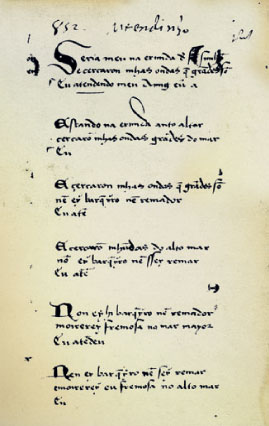 852. Meendinho
Seria meu na ermida de
e cercaron mhas ondas q̄ grādes sō
Eu atendendo meu amig eu a
Estando na ermida anto altar
cercarō mhas ondas grādes do mar
Eu
E cercaron mhas ondas q̄ grādes sō
nē ey barq̄yro nē remador
Eu atē
E cercarō mhōdas do alto mar
nō ey barq̄yro nē sey remar
Eu atē
Non ey hi barq̄yro nē remador
morerey fremosa no mar mayor
Eu atēdeu
Nen ey barq̄yro nē sey remar
morerey eu fremosa no alto mar
Eu